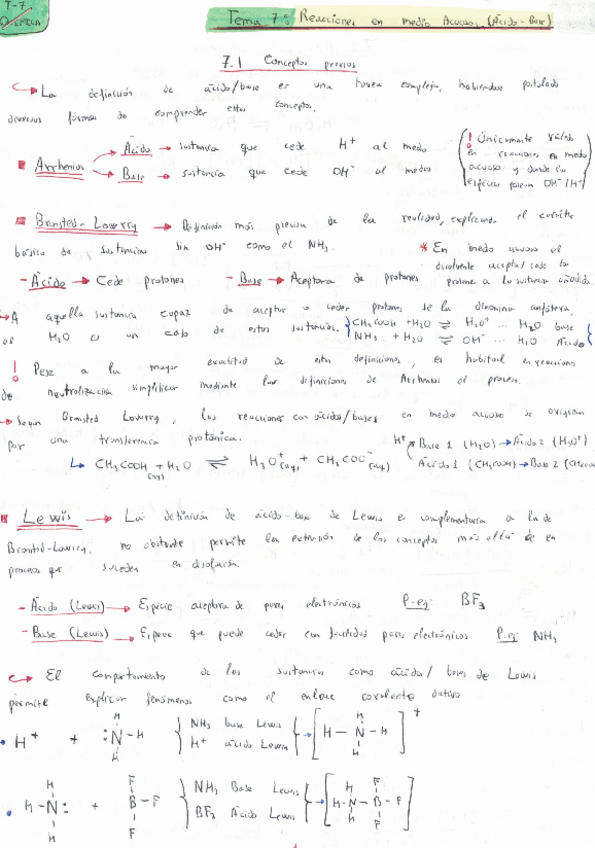 T-7
Química
Tema 7: Reacciones en medio Acuoso (Ácido-Base)
7.1 Conceptos previos
La definición de ácido/base es una tarea compleja, habiéndose postulado
diversas formas de comprender estos conceptos.
Arrhenius
Ácido → sustancia que cede H⁺ al medio
Base → sustancia que cede OH⁻ al medio
! Únicamente válido
en reacciones en medio
acuoso y donde las
especies posean OH⁻/H⁺
Bronsted-Lowerry → Definición más precisa de la realidad, explicando el carácter
básico de sustancias sin OH⁻ como el NH₃.
* En medio acuoso el
disolvente acepta/cede los
protones a la sustancia añadida.
- Ácido → Cede protones
- Base → Aceptora de protones
→ A aquella sustancia capaz de aceptar o ceder protones se la denomina anfótera,
el H₂O es un caso de estas sustancias.
CH₃COOH + H₂O ⇌ H₃O⁺ ... H₂O base
NH₃ + H₂O ⇌ OH⁻ ... H₂O Ácido
! Pese a la mayor exactitud de estas definiciones, es habitual en reacciones
de neutralización simplificar mediante las definiciones de Arrhenius el proceso.
→ Según Bronsted Lowerry, las reacciones con ácidos/bases en medio acuoso se originan
por una transferencia protónica.
H⁺
Base 1 (H₂O) → Ácido 2 (H₃O⁺)
Ácido 1 (CH₃COOH) → Base 2 (CH₃COO
↳ CH₃COOH (aq) + H₂O ⇌ H₃O⁺(aq) + CH₃COO⁻(aq)
Lewis → La definición de ácido-base de Lewis es complementaria a la de
Bronsted-Lowerry, no obstante permite la extensión de los conceptos más allá de en
procesos que suceden en disolución.
- Ácido (Lewis) → Especie aceptora de pares electrónicos P.ej: BF₃
- Base (Lewis) → Especie que puede ceder con facilidad pares electrónicos P.ej: NH₃
El comportamiento de las sustancias como ácido/bases de Lewis
permite explicar fenómenos como el enlace covalente dativo
H⁺ + :N-H H H
NH₃ base Lewis
H⁺ ácido Lewis
→ [H-N-H H H]⁺
H-N: H H + B-F F F
NH₃ Base Lewis
BF₃ Ácido Lewis
→ [H-N-B-F H H F F]